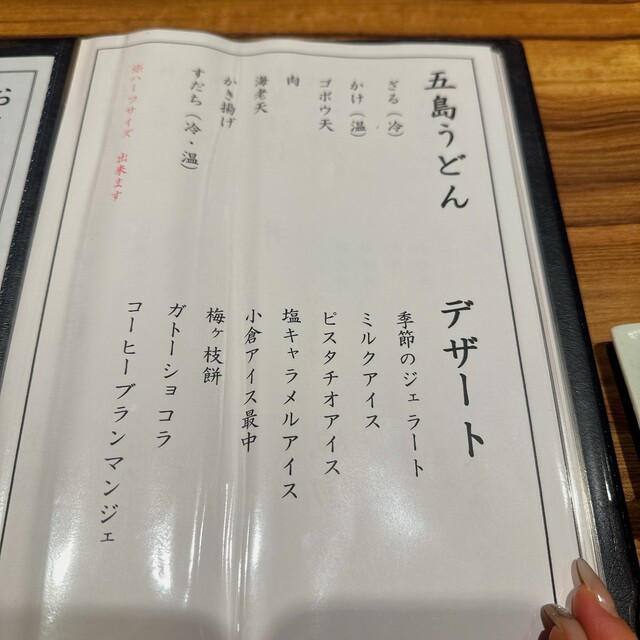 五島うどん
ざる（冷）
かけ（温）
ゴボウ天
肉
海老天
かき揚げ
すだち（冷・温）
※ハーフサイズ 出来ます
デザート
季節のジェラート
ミルクアイス
ピスタチオアイス
塩キャラメルアイス
小倉アイス最中
梅ヶ枝餅
ガトーショコラ
コーヒーブランマンジェ
お